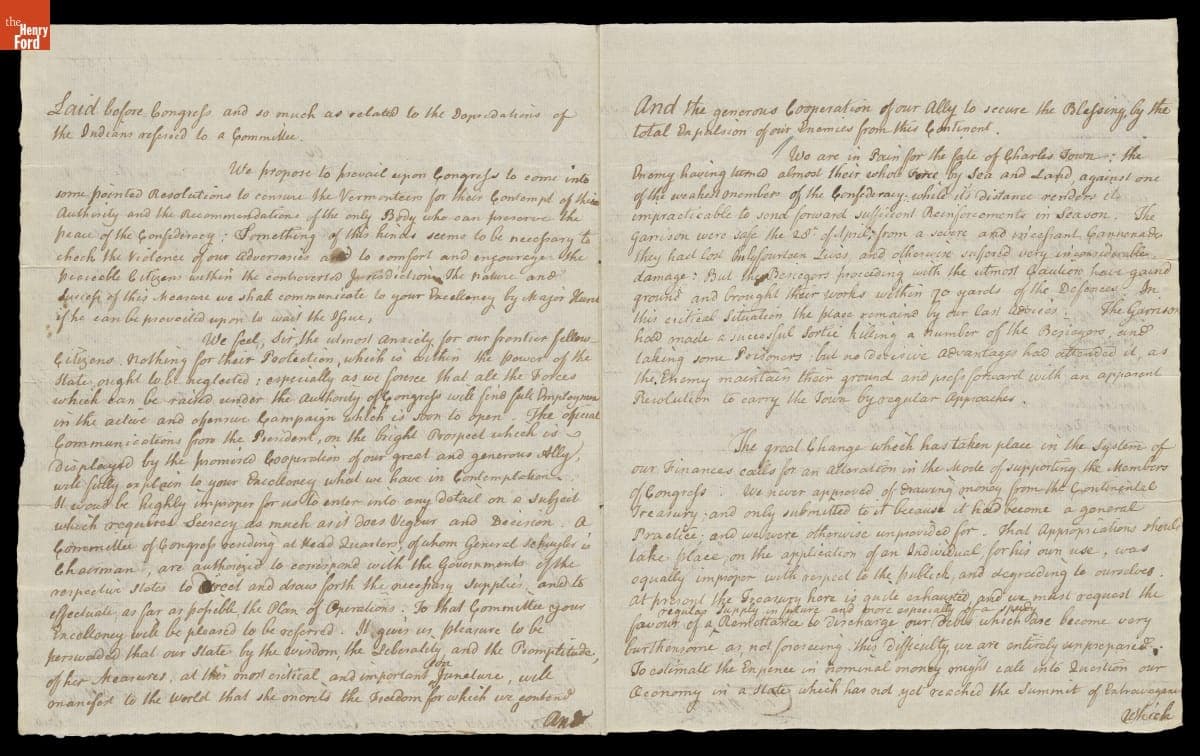 the
Henry
Ford
Laid before Congress and so much as related to the Depredations of
the Indians refered to a Committee.
We propose to prevail upon Congress to come into
some pointed Resolutions to censure the Vermonteers for their Contempt of their
Authority and the Recommendations of the only Body who can preserve the
peace of the Confederacy: Something of this kind seems to be necessary to
check the Violence of our Adversaries and to comfort and encourage the
peaceable Citizens within the controverted Jurisdiction. The nature and
success of this Measure we shall communicate to your Excellency by Major Hunt
if he can be prevailed upon to wait the Issue,
We feel, Sir the utmost anxiety for our frontier fellow-
Citizens. Nothing for their Protection, which is within the power of the
State, ought to be neglected: especially as we foresee that all the Forces
which can be raised under the Authority of Congress will find full Employmen
in the active and offensive Campaign which is soon to open. The official
Communications from the President, on the bright Prospect which is
displayed by the promised Cooperation of our great and generous Ally,
will fully explain to your Excellency what we have in Contemplation
It would be highly improper for us to enter into any detail on a subject
which requires Secrecy as much as it does Vigour and Decision. A
Committee of Congress residing at Head Quarters, of whom General Schuyler is
Chairman, are authorized to correspond with the Governments of the
respective States to direct and draw forth the necessary Supplies, and to
effectuate as far as possible the Plan of Operations. To that Committee your
Excellency will be pleased to be referred. It gives us pleasure to be
perswaded that our State by the wisdom, the Liberality and the Promptitude,
of her Measures, at this most critical and important Juncture, will
manifest to the World that she merits the Freedom for which we contend
And
And the generous Cooperation of our Ally to secure the Blessing, by the
total Expulsion of our Enemies from this Continent.
We are in Pain for the fate of Charles Town; the
Enemy having turned almost their whole Force by Sea and Land, against one
of the weakest member of the Confederacy; while its distance renders it
impracticable to send forward sufficient Reinforcements in Season. The
Garrison were safe the 28th of April; from a severe and incessant Cannonade
they had lost only fourteen Lives, and otherwise suffered very inconsiderable
damage: But the Besiegers proceeding with the utmost Caution have gained
ground and brought their works within 70 yards of the Defences. In
this critical Situation the place remained by our last Advices. The Garrison
had made a sucessful Sortie killing a number of the Besiegers, and
taking some Prisoners: but no decisive advantages had attended it, as
the Enemy maintain their ground and press forward with an apparent
Resolution to carry the Town by regular Approaches.
The great Change which has taken place in the System of
our Finances calls for an alteration in the Mode of supporting the Members
of Congress. We never approved of drawing money from the Continental
Treasury; and only submitted to it because it had become a general
Practice; and we were otherwise unprovided for. That Appropriations should
take place, on the application of an Individual, for his own use, was
equally improper with respect to the publick, and degrading to ourselves.
At present the Treasury here is quite exhausted, and we must request the
regular Supply in future and more especially of a speedy
favour of a Remittance to discharge our Debts which are become very
burthensome as not foreseeing this difficulty we are entirely unprepared.
To estimate the Expence in nominal money might call into Question our
Oeconomy in a State which has not yet reached the Summit of Extravagance
Which